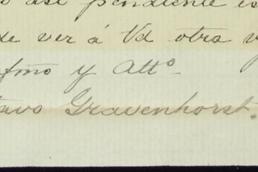 o así pendiente es
de ver á Vd otra v
afmo y Atto
tavo Gravenhorst.